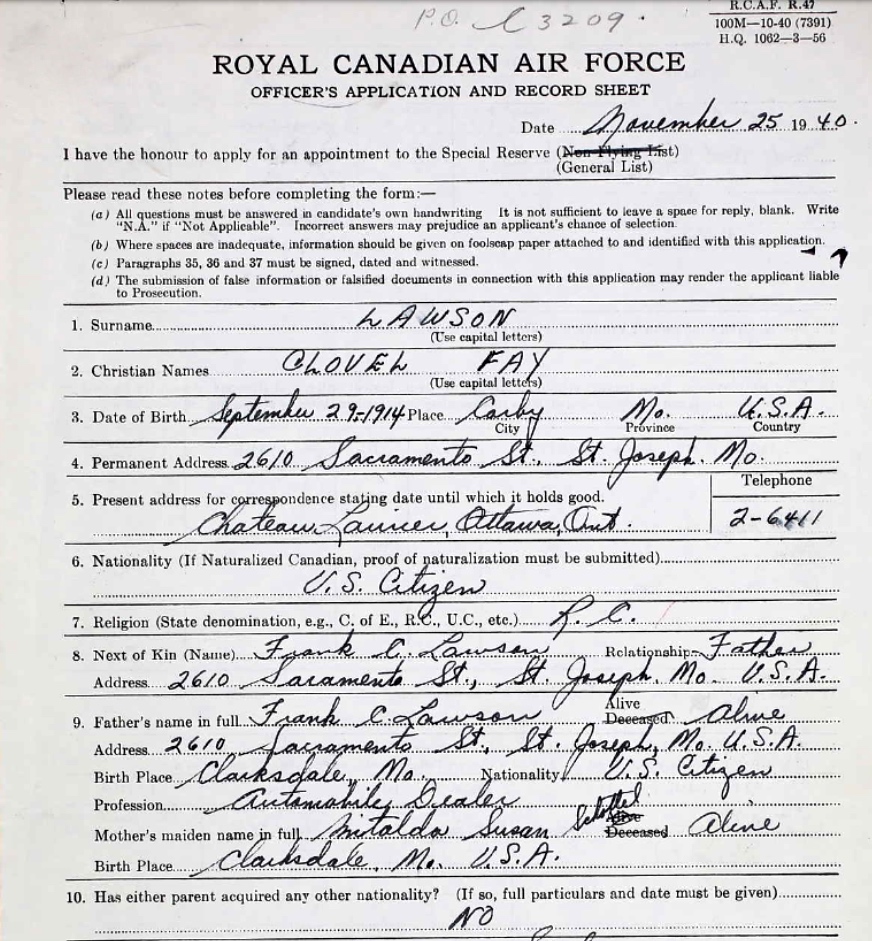 P.O. C 3209.
R.C.A.F. R.47
100M—10-40 (7391)
H.Q. 1062—3—56
ROYAL CANADIAN AIR FORCE
OFFICER'S APPLICATION AND RECORD SHEET
Date November 25 1940.
I have the honour to apply for an appointment to the Special Reserve (Non-Flying List)
(General List)
Please read these notes before completing the form:—
(a) All questions must be answered in candidate's own handwriting It is not sufficient to leave a space for reply, blank. Write
"N.A." if "Not Applicable". Incorrect answers may prejudice an applicant's chance of selection.
(b) Where spaces are inadequate, information should be given on foolscap paper attached to and identified with this application.
(c) Paragraphs 35, 36 and 37 must be signed, dated and witnessed.
(d) The submission of false information or falsified documents in connection with this application may render the applicant liable
to Prosecution.
1. Surname LAWSON
(Use capital letters)
2. Christian Names CLOVEL FAY
(Use capital letters)
3. Date of Birth September 29-1914 Place Cosby Mo. U.S.A.
City Province Country
4. Permanent Address 2610 Sacramento St., St. Joseph. Mo.
Telephone
5. Present address for correspondence stating date until which it holds good.
Chateau Laurier, Ottawa, Ont. 2-6411
6. Nationality (If Naturalized Canadian, proof of naturalization must be submitted)
U.S. Citizen
7. Religion (State denomination, e.g., C. of E., R.C., U.C., etc.) R.C.
8. Next of Kin (Name) Frank C. Lawson Relationship Father
Address 2610 Sacramento St., St. Joseph. Mo. U.S.A.
9. Father's name in full Frank C. Lawson Alive Deceased Alive
Address 2610 Sacramento St., St. Joseph, Mo. U.S.A.
Birth Place Clarksdale, Mo. Nationality U.S. Citizen
Profession Automobile Dealer
Mother's maiden name in full Susan Alive Deceased Alive
Birth Place Clarksdale, Mo. U.S.A.
10. Has either parent acquired any other nationality? (If so, full particulars and date must be given)
NO